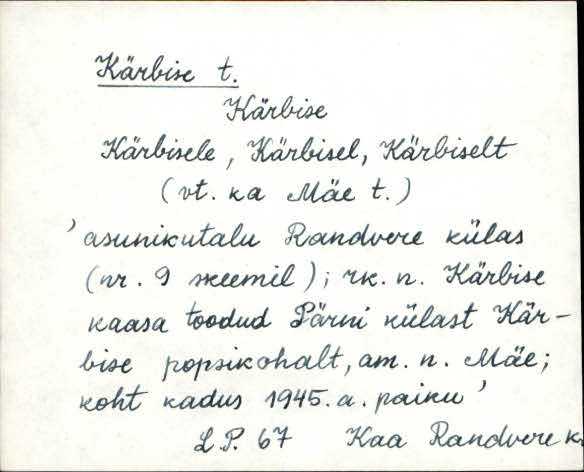 Kärbise t.
Kärbise
Kärbisele, Kärbisel, Kärbiselt
(vt. ka Mäe t.)
'asunikutalu Randvere külas
(nr. 9 skeemil); rk. n. Kärbise
kaasa toodud Pärni külast Kär-
bise popsikohalt, am. n. Mäe;
koht kadus 1945. a. paiku'
L.P. 67 Kaa Randvere k.